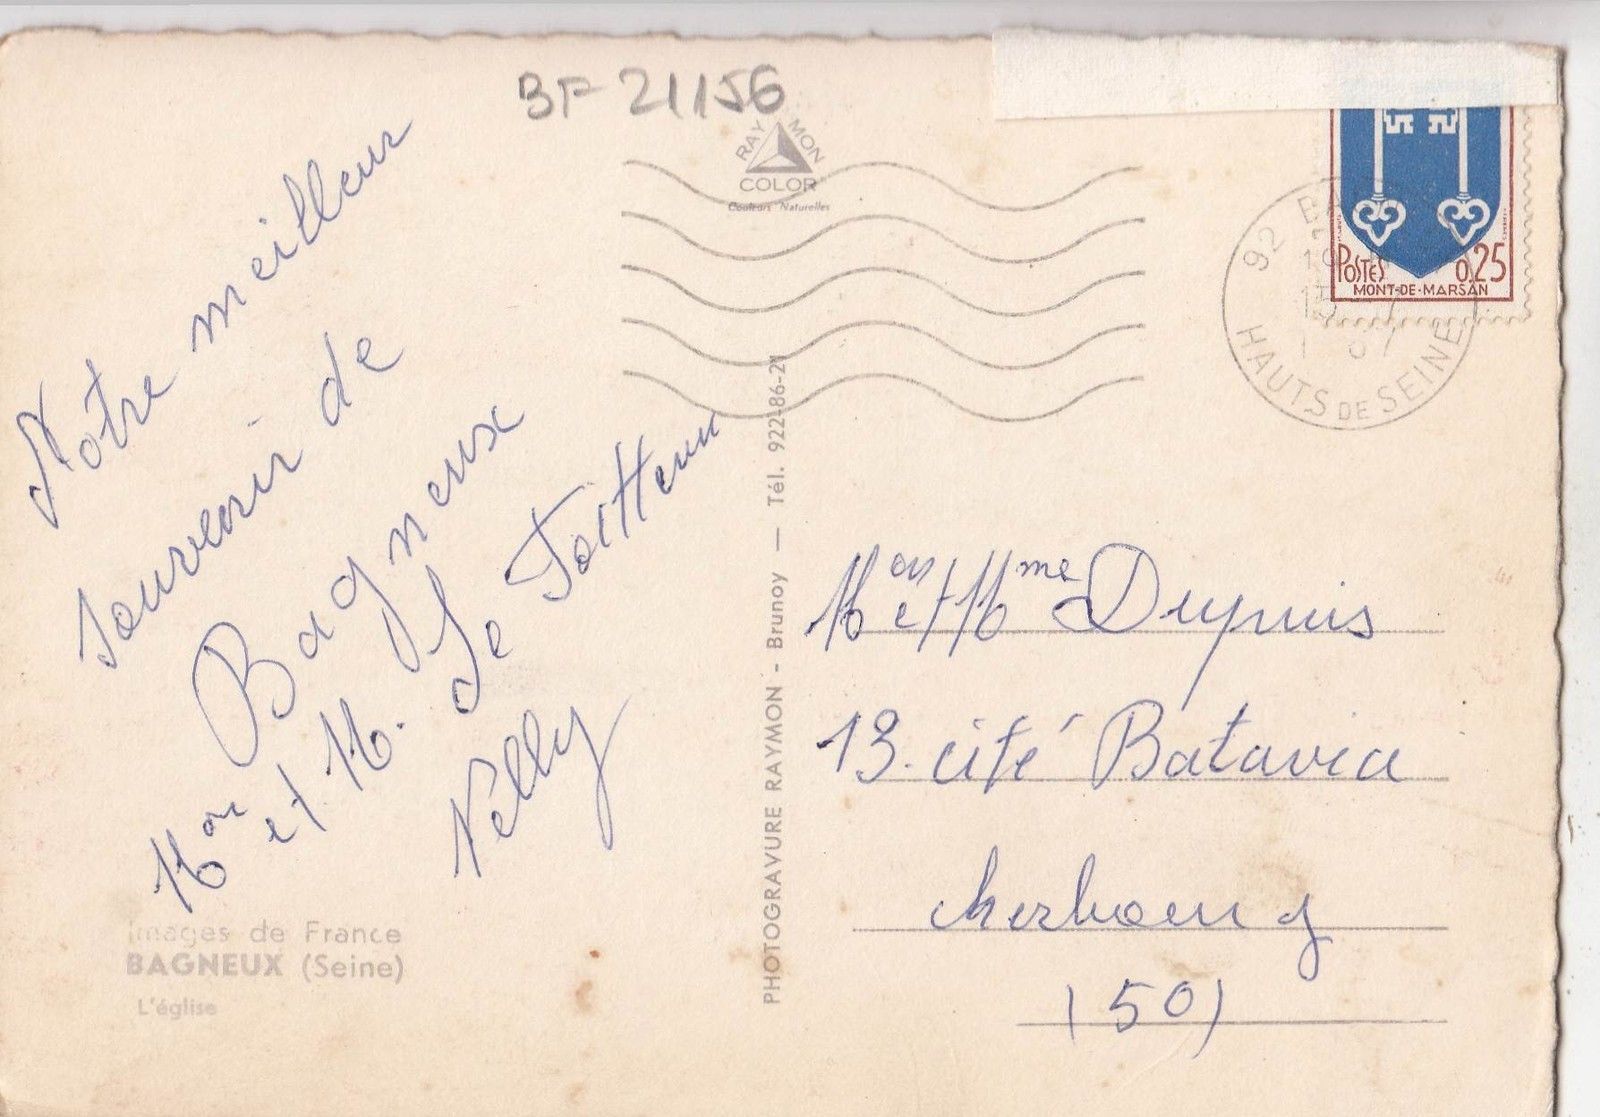 BF 21156
RAYMON
COLOR
Couleurs Naturelles
POSTES 0,25
MONT-DE-MARSAN
92
HAUTS DE SEINE
Notre meilleur
souvenir de
Bagneux
et M. Le
Nelly
PHOTOGRAVURE RAYMON - Brunoy — Tél. 922-86-21
M et Mme Dupuis
13. cité Batavia
cherbourg
(50)
Images de France
BAGNEUX (Seine)
L'église